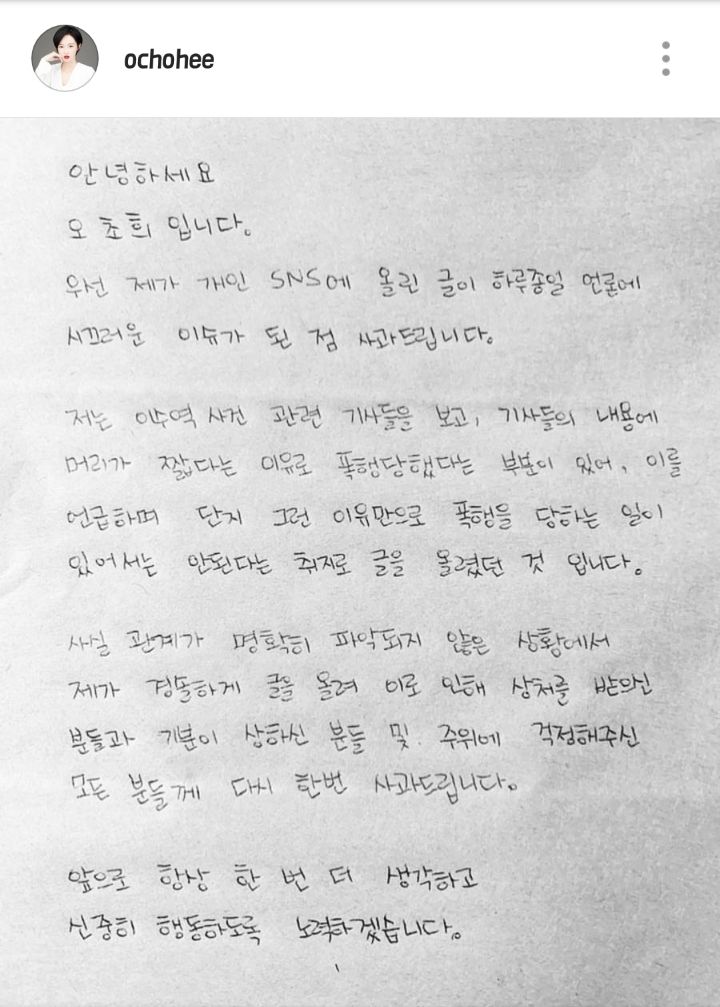 ochohee
안녕하세요
오 초희 입니다.
우선 제가 개인 SNS에 올린 글이 하루종일 언론에
시끄러운 이슈가 된 점 사과드립니다.
저는 이수역 사건 관련 기사들을 보고, 기사들의 내용에
머리가 짧다는 이유로 폭행당했다는 부분이 있어, 이를
언급하며 단지 그런 이유만으로 폭행을 당하는 일이
있어서는 안된다는 취지로 글을 올렸던 것 입니다.
사실 관계가 명확히 파악되지 않은 상황에서
제가 경솔하게 글을 올려 이로 인해 상처를 받으신
분들과 기분이 상하신 분들 및 주위에 걱정해주신
모든 분들께 다시 한번 사과드립니다.
앞으로 항상 한 번 더 생각하고
신중히 행동하도록 노력하겠습니다.